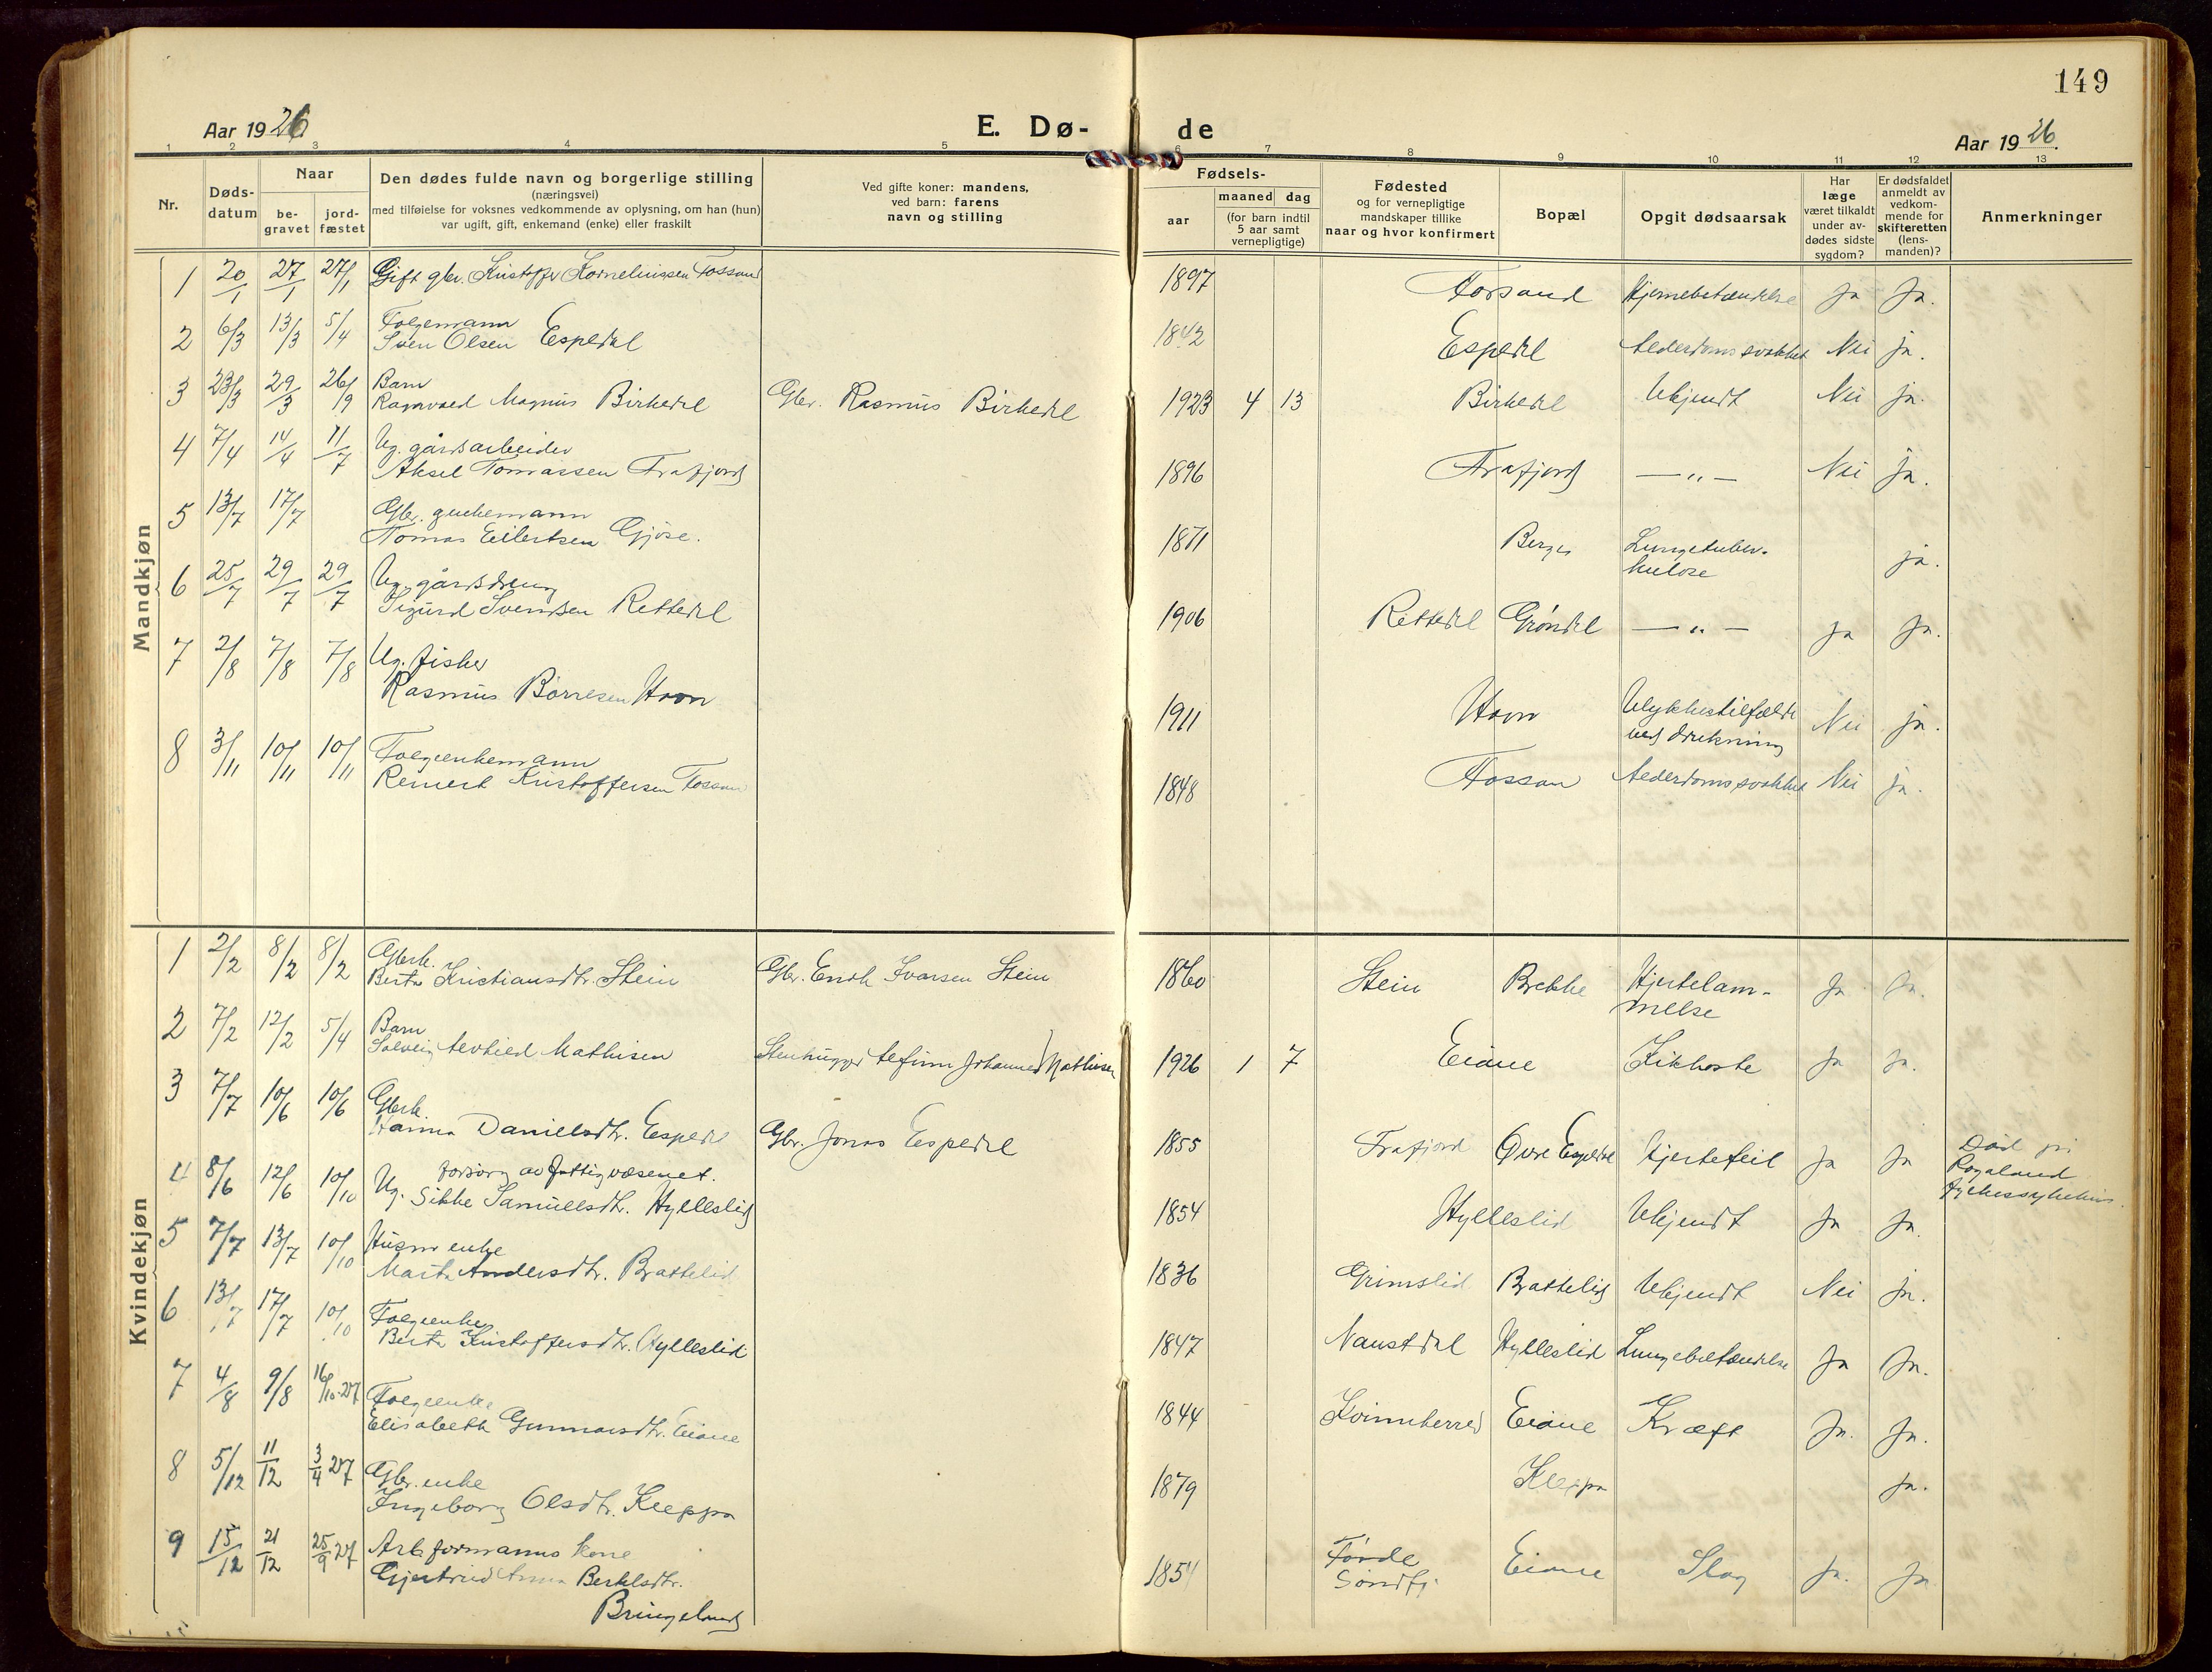 149
Aar 1926
E. Dø-
de
Aar 1926.
1 2 3 4 5 6 7 8 9 10 11 12 13
Nr.
Døds-
datum
Naar
be-
gravet
jord-
fæstet
Den dødes fulde navn og borgerlige stilling
(næringsvei)
med tilføielse for voksnes vedkommende av oplysning, om han (hun)
var ugift, gift, enkemand (enke) eller fraskilt
Ved gifte koner: mandens,
ved barn: farens
navn og stilling
Fødsels-
aar
maaned dag
(for barn indtil
5 aar samt
vernepligtige)
Fødested
og for vernepligtige
mandskaper tillike
naar og hvor konfirmert
Bopæl
Opgit dødsaarsak
Har
læge
været tilkaldt
under av-
dødes sidste
sygdom?
Er dødsfaldet
anmeldt av
vedkom-
mende for
skifteretten
(lens-
manden)?
Anmerkninger
Mandkjøn
1 20/1 27/1 27/1 Gift gbr. Kristoffer Kornelinssen Fossan 1897 Forsand Hjernebetændelse Ja Ja.
2 6/3 13/3 5/4 Folgemann
Sven Olsen Espedal 1842 Espedal Alderdomssvakhet Nei ja.
3 23/3 29/3 26/9 Barn
Ragnvald Magnus Birkedal Gbr. Rasmus Birkedal 1923 4 13 Birkedal Ukjendt Nei ja.
4 7/4 14/4 11/7 Ug. gårdsarbeider
Aksel Tomassen Frafjord 1896 Frafjord — „ — Nei ja.
5 13/7 17/7 Gbr. enkemann
Tomas Eilertsen Gjöse. 1871 Berge Lungetuber-
kulose ja.
6 25/7 29/7 29/7 Ug. gårdsdreng
Sigurd Svendsen Rettedal 1906 Rettedal Gröndal — „ — ja ja.
7 2/8 7/8 7/8 Ug. fisker
Rasmus Börresen Havn 1911 Havn Ulykkestilfælde
ved drukning Nei ja.
8 3/11 10/11 10/11 Folgeenkemann
Reinert Kristoffersen Fossan 1848 Fossan Alderdomssvakhet Nei ja.
Kvindekjøn
1 2/2 8/2 8/2 Gbrk.
Berta Kristiansdtr. Stein Gbr. Endk Ivarsen Stein 1860 Stein Brekke Hjertelam-
melse Ja Ja.
2 7/2 12/2 5/4 Barn
Solveig Alvhild Mathisen Stenhugger Alfinn Johannes Mathisen 1926 1 7 Eiane Kikhoste Ja Ja.
3 7/7 10/6 10/6 Gbrk.
Hanna Danielsdtr. Espedal Gbr. Jonas Espedal 1855 Frafjord Övre Espedal Hjertefeil Ja Ja Död på
Rogaland
fylkessykehus.
4 8/6 12/6 10/10 forsörg av fattigvæsenet.
Ug. Sikke Samuelsdtr. Hylleslid 1854 Hylleslid Ukjendt Ja Ja.
5 7/7 13/7 10/10 Husm enke
Marta Andersdtr. Brattelid 1836 Grimslid Brattelid Ukjendt Nei ja.
6 13/7 17/7 10/10 Folgeenke
Berta Kristoffersdtr. Hylleslid 1847 Naustdal Hylleslid Lungebetændelse Ja Ja.
7 4/8 9/8 16/10-27 Folgeenke
Elisabeth Gunnarsdtr. Eiane 1844 Kvinnherred Eiane Kræft Ja. Ja.
8 5/12 11/12 3/4 27 Gbr. enke
Ingeborg Olsdtr. Kleppa 1879 Kleppa Ja.
9 15/12 21/12 25/9 27 Arb formanns kone
Gjertrud Anna Bertelsdtr.
Bringeland 1854 Förde
Söndfj. Eiane Slag Ja. Ja